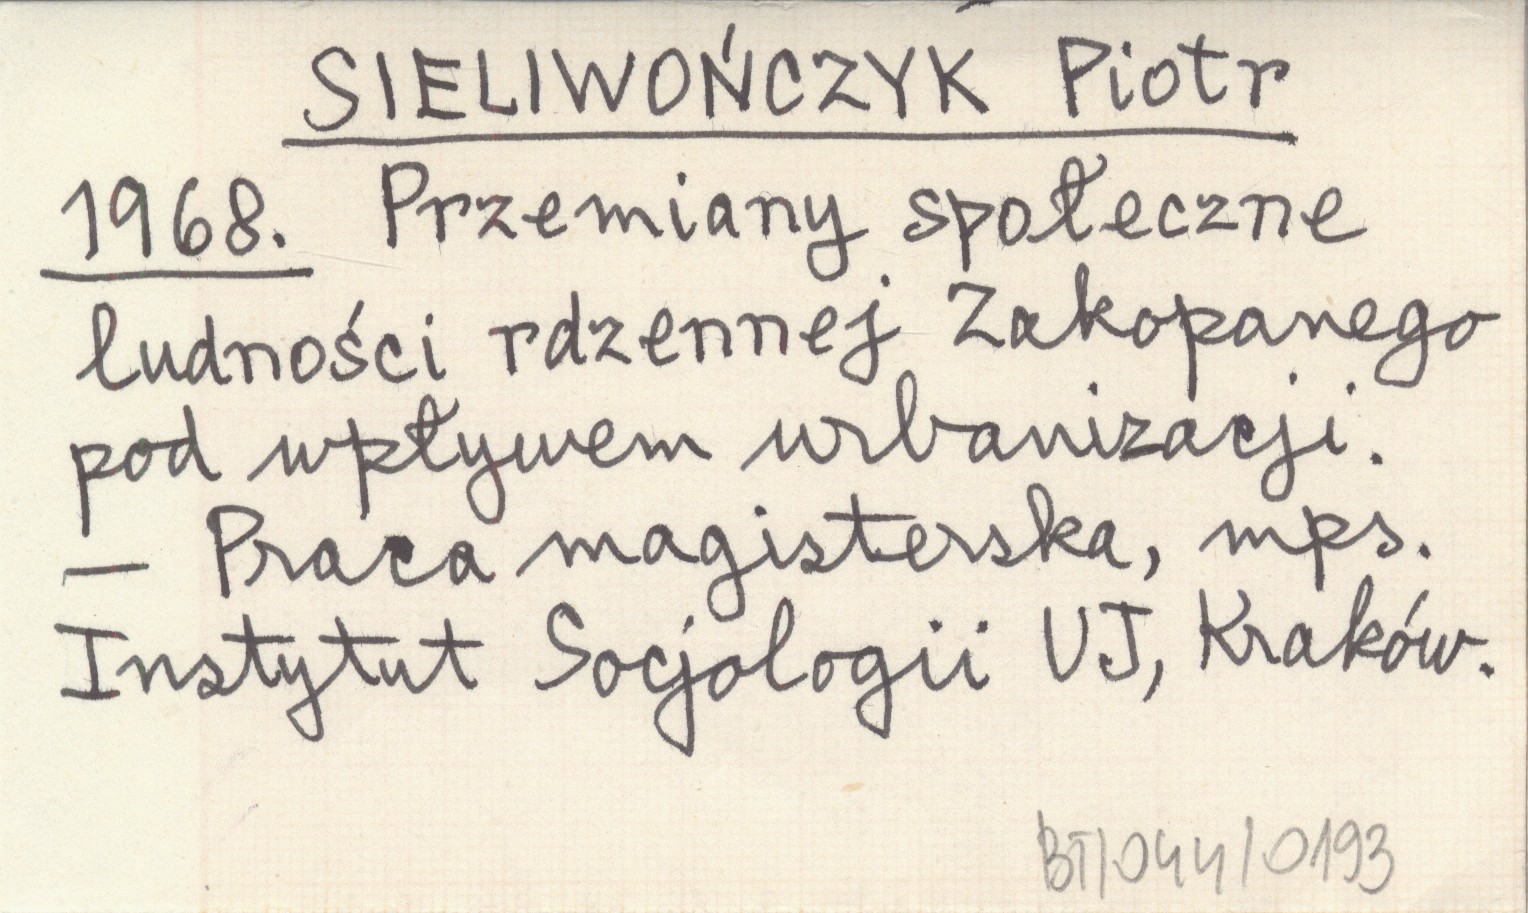 SIELIWOŃCZYK Piotr
1968. Przemiany społeczne
ludności rdzennej Zakopanego
pod wpływem urbanizacji.
— Praca magisterska, mps.
Instytut Socjologii UJ, Kraków.
BT/044/0193